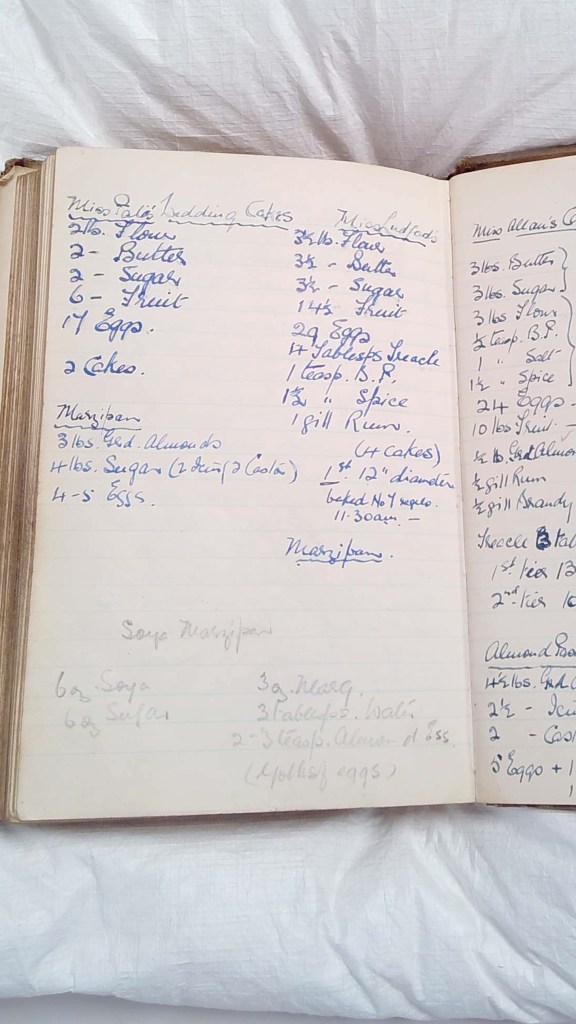 Wedding Cakes
2 lb. Flour
2 - Butter
2 - Sugar
6 - Fruit
17 Eggs.
2 Cakes.
Marzipan
3 lbs. Grd. Almonds
4 lbs. Sugar (2 Icing 2 Castor)
4-5 Eggs.
Miss
3½ lb. Flour
3½ - Butter
3½ - Sugar
14½ Fruit
29 Eggs
4 Tablesps Treacle
1 teasp. B.P.
1½ " Spice
1 gill Rum.
(4 cakes)
1st 12" diameter
baked No 1 regulo.
11.30am -
Marzipan.
Soya Marzipan
6 oz Soya
6 oz Sugar
3 oz. Marg.
3 tablesps. Water
2-3 teasp. Almond Ess.
(Yolks of eggs)
Miss Allan's C
3 lbs. Butter
3 lbs. Sugar
3 lbs Flour
½ teasp. B.P.
1 " Salt
1½ " Spice
24 Eggs -
10 lbs Fruit -
½ lb. Grd Almon
½ gill Rum
½ gill Brandy
Treacle 3 Tab
1st tier 13
2nd tier 10
Almond
4½ lbs. Grd
2½ - Icin
2 - Cas
5 Eggs + 1
1